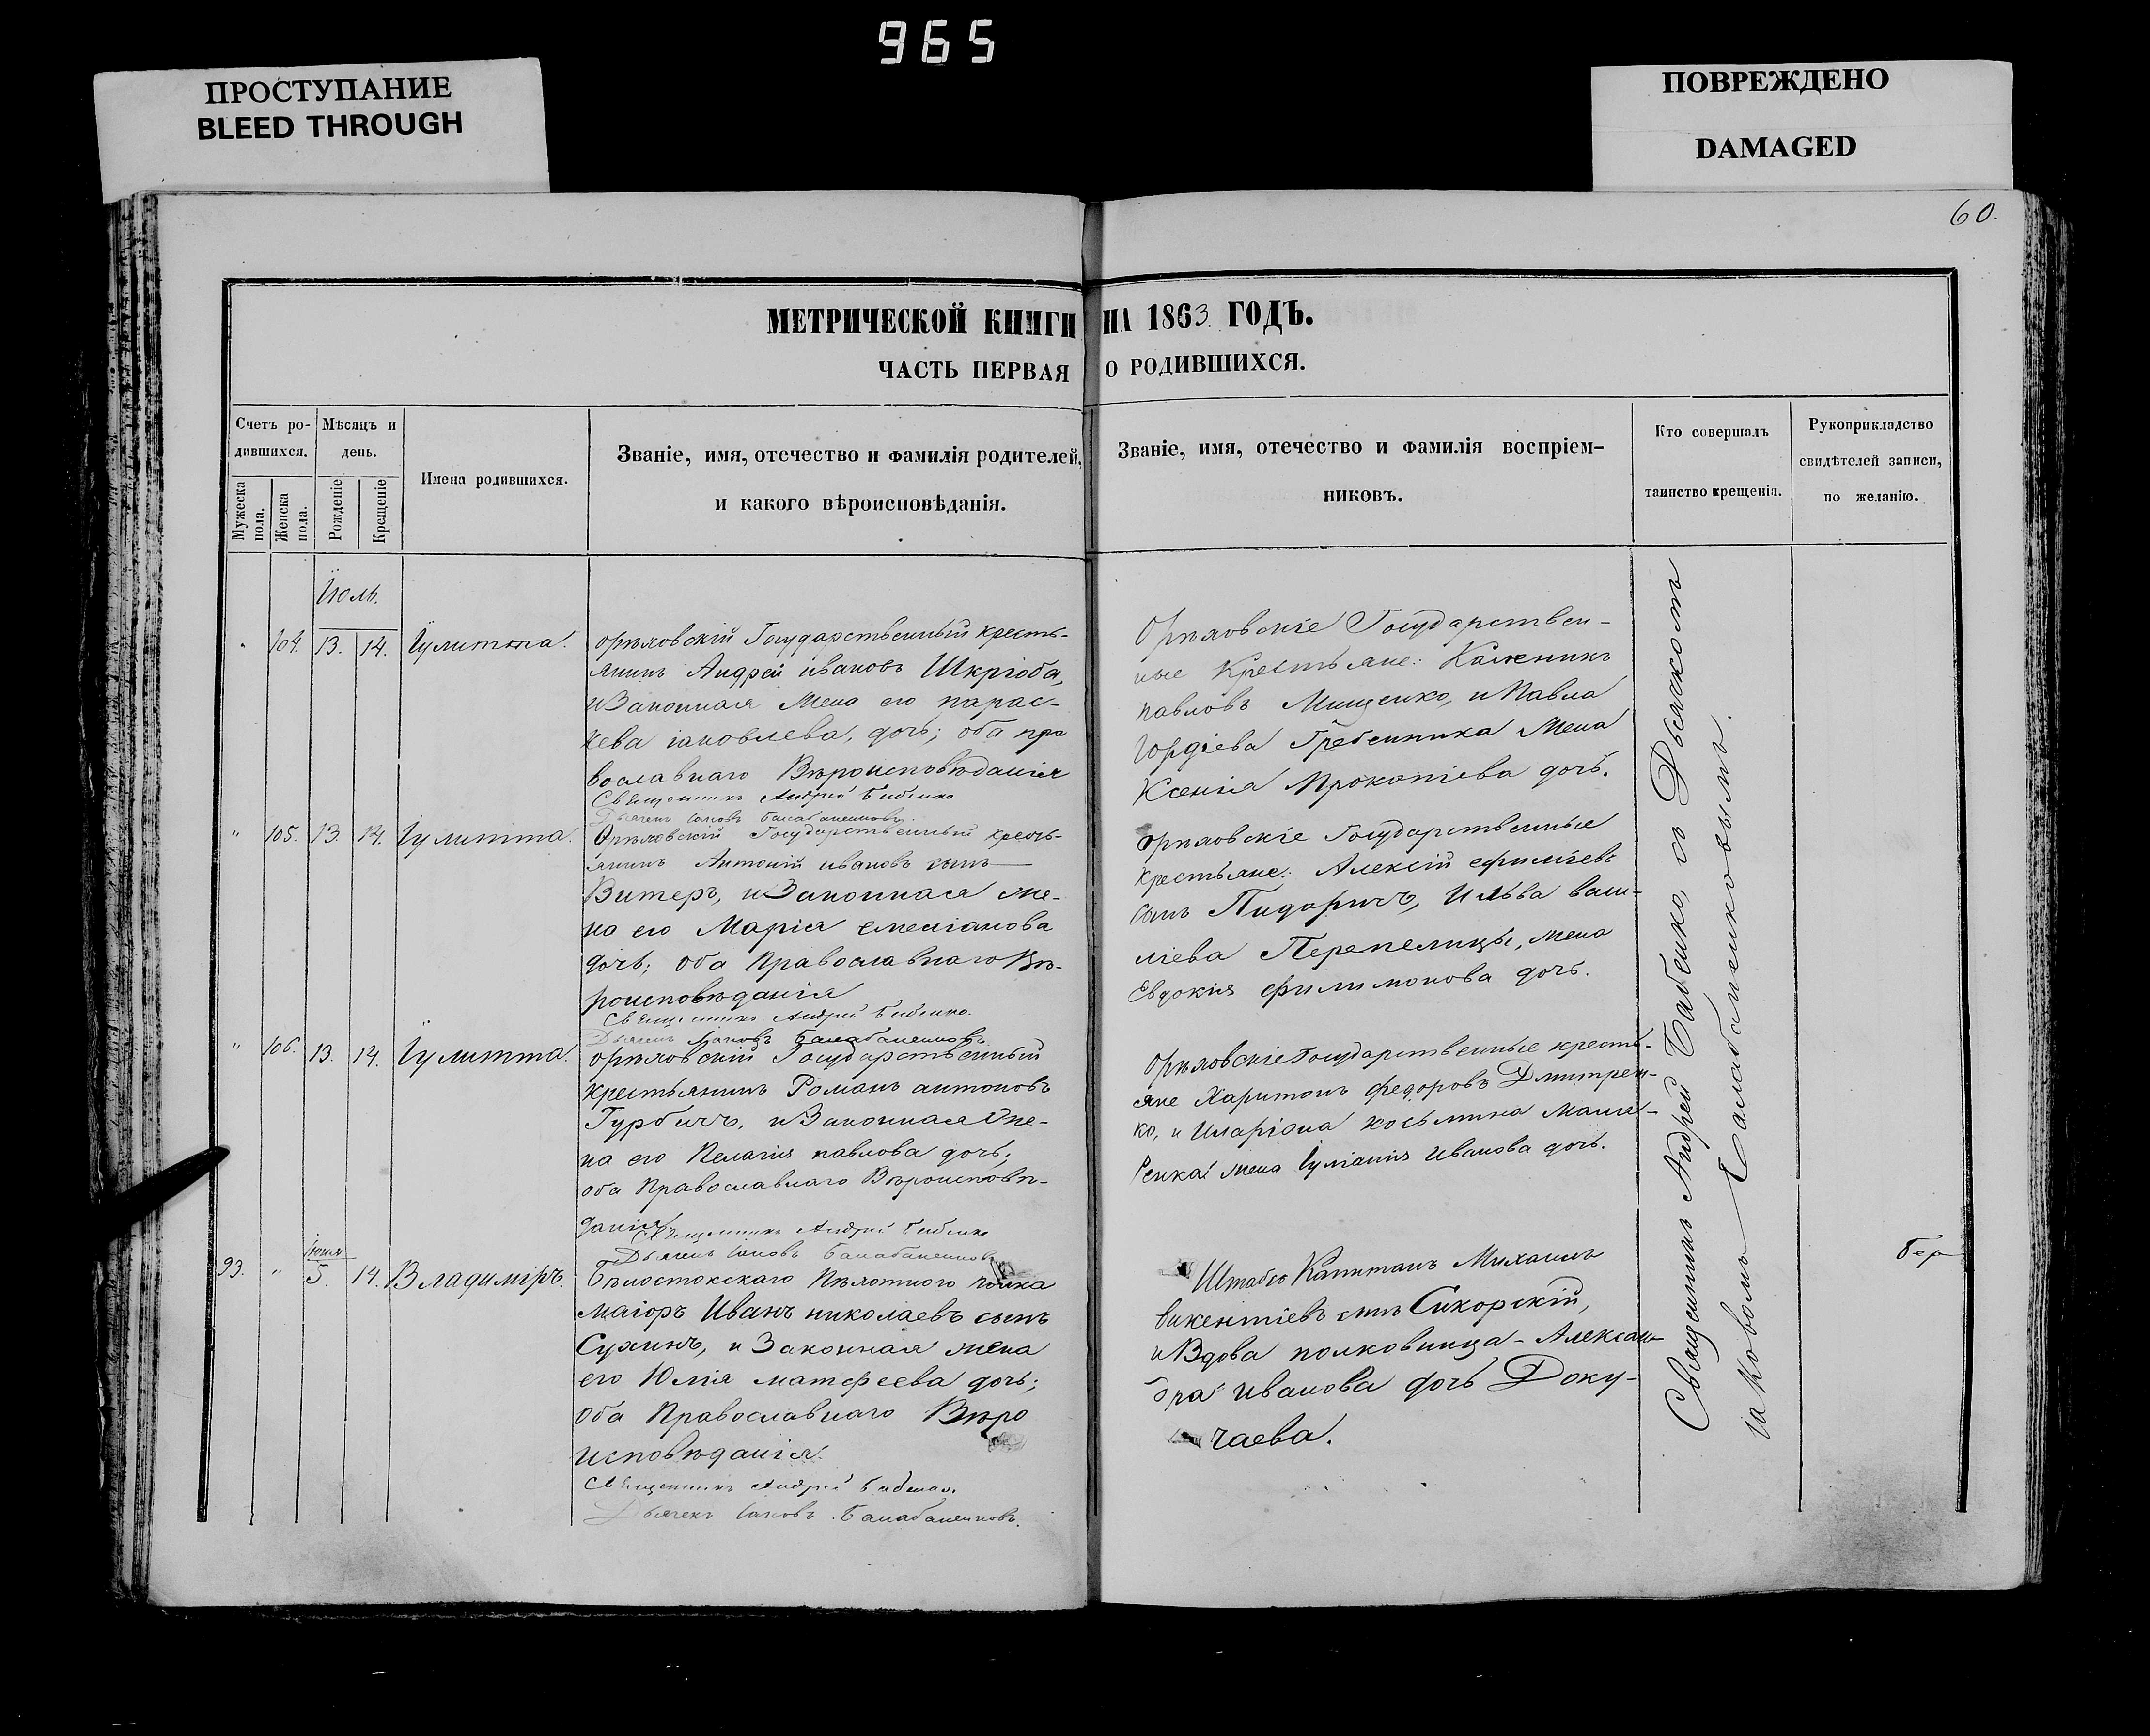 965
ПРОСТУПАНИЕ
BLEED THROUGH
ПОВРЕЖДЕНО
DAMAGED
60.
МЕТРИЧЕСКОЙ КНИГИ НА 1863 ГОДЪ.
ЧАСТЬ ПЕРВАЯ О РОДИВШИХСЯ.
Счетъ ро-
дившихся.
Мужеска пола.
Женска пола.
Мѣсяцъ и
день.
Рожденіе
Крещеніе
Имена родившихся.
Званіе, имя, отечество и фамилія родителей,
и какого вѣроисповѣданія.
Званіе, имя, отечество и фамилія воспріем-
никовъ.
Кто совершалъ
таинство крещенія.
Рукоприкладство
свидѣтелей записи,
по желанію.
Іюль.
" 104. 13. 14. Іулитта.
Орѣловскій Государственный кресть-
янинъ Андрей Ивановъ Шкрюба,
и Законная Жена его Парас-
кева Іаковлева, дочь; оба пра
вославнаго Вѣроисповѣданія
Священникъ Андрей Бабенко
Дьячекъ Іаковъ Балабаненковъ.
Орѣловскіе Государствен-
ные Крестьяне: Каленикъ
Павловъ Мищенко, и Павла
Гордіева Гребенника Жена
Ксенія Прокопіева дочь.
" 105. 13. 14. Іулитта.
Орѣловскій Государственный кресть-
янинъ Антоній Ивановъ сынъ
Витеръ, и Законная же-
на его Марія Емеліанова
дочь; оба Православнаго Вѣ-
роисповѣданія
Священникъ Андрей Бабенко.
Дьячекъ Іаковъ Балабаненковъ.
Орѣловскіе Государственные
крестьяне: Алексій Ефиміевъ
сынъ Пидоричъ, и Льва Васи-
ліева Перепелицы, жена
Евдокія Филимонова дочь.
" 106. 13. 14. Іулитта.
Орѣловскій Государственный
крестьянинъ Романъ Антоновъ
Гурбичъ, и Законная Же-
на его Пелагія Павлова дочь;
оба Православнаго Вѣроисповѣ-
данія
Священникъ Андрей Бабенко
Дьячекъ Іаковъ Балабаненковъ
Орѣловскіе Государственные кресть-
яне Харитонъ Федоровъ Дмитрен-
ко, и Иларіона Косьмина
жена Іуліанія Иванова дочь.
93. " Іюня 5. 14. Владиміръ.
Бѣлостокскаго Пѣхотного Полка
Маіоръ Иванъ Николаевъ сынъ
Сухинъ, и Законная жена
его Юлія Матфеева дочь;
Оба Православнаго Вѣро
исповѣданія.
Священникъ Андрей Бабенко.
Дьячекъ Іаковъ Балабаненковъ.
Штабсъ Капитанъ Михаилъ
Викентіевъ сынъ Сикорскій,
и Вдова полковница Алексан-
дра Иванова дочь Доку-
чаева.
Священникъ Андрей Бабенко, съ Дьячкомъ
Іаковомъ Балабаненковымъ.